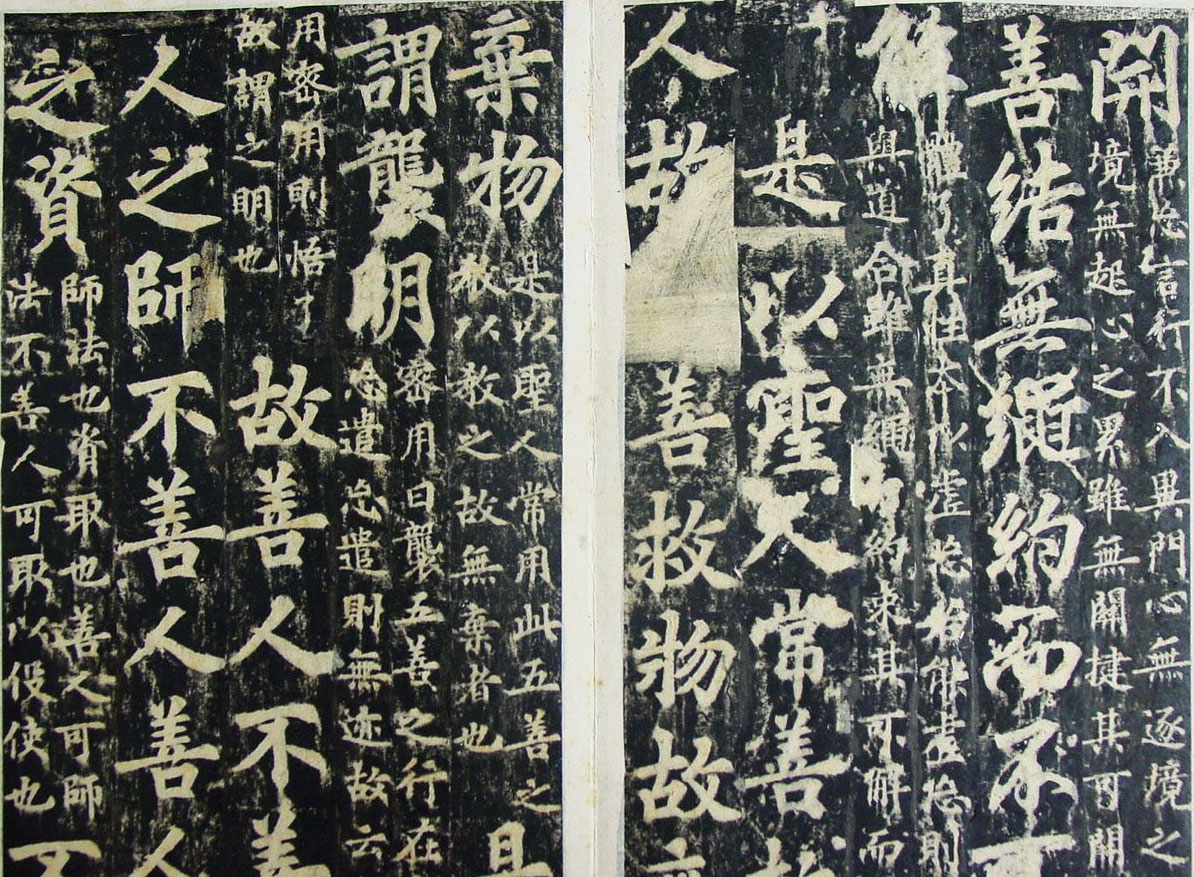 開
兼忘言行不入異門心無逐境之
境無起心之累雖無關揵其可開
善結無繩約而不可
解
體了真性本以虛忘若能虛忘則
與道合雖無繩約束其可解而
是以聖人常善
人故善救物故
棄物
是以聖人常用此五善之
教以教之故無棄者也
是
謂襲明
密用曰襲五善之行在
忘遣忘遣則無迹故云
用密用則悟了
故謂之明也
故善人不善
人之師不善人善人
之資
師法也資取也善人可師
法不善人可取以役使也
不